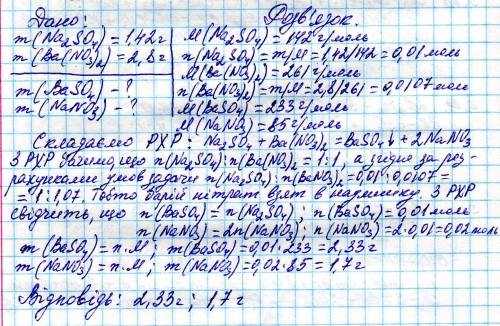 Дано:
m(Na₂SO₄) = 1,42г
m(Ba(NO₃)₂) = 2,8г
m(BaSO₄) - ?
m(NaNO₃) - ?
Розв'язок.
M(Na₂SO₄) = 142 г/моль
n(Na₂SO₄) = m/M = 1,42/142 = 0,01 моль
M(Ba(NO₃)₂) = 261 г/моль
n(Ba(NO₃)₂) = m/M = 2,8/261 = 0,0107 моль
M(BaSO₄) = 233 г/моль
M(NaNO₃) = 85 г/моль
Складаємо РХР: Na₂SO₄ + Ba(NO₃)₂ = BaSO₄↓ + 2NaNO₃
З РХР бачимо, що n(Na₂SO₄) : n(Ba(NO₃)₂) = 1:1, а згідно за роз-
рахунками умов задачі n(Na₂SO₄) : n(Ba(NO₃)₂) = 0,01 : 0,0107 =
= 1 : 1,07. Тобто барій нітрат взят в надлишку. З РХР
свідчить, що n(BaSO₄) = n(Na₂SO₄); n(BaSO₄) = 0,01 моль
n(NaNO₃) = 2n(Na₂SO₄); n(NaNO₃) = 2·0,01 = 0,02 моль
m(BaSO₄) = n·M; m(BaSO₄) = 0,01·233 = 2,33г
m(NaNO₃) = n·M; m(NaNO₃) = 0,02·85 = 1,7г
Відповідь: 2,33г; 1,7г